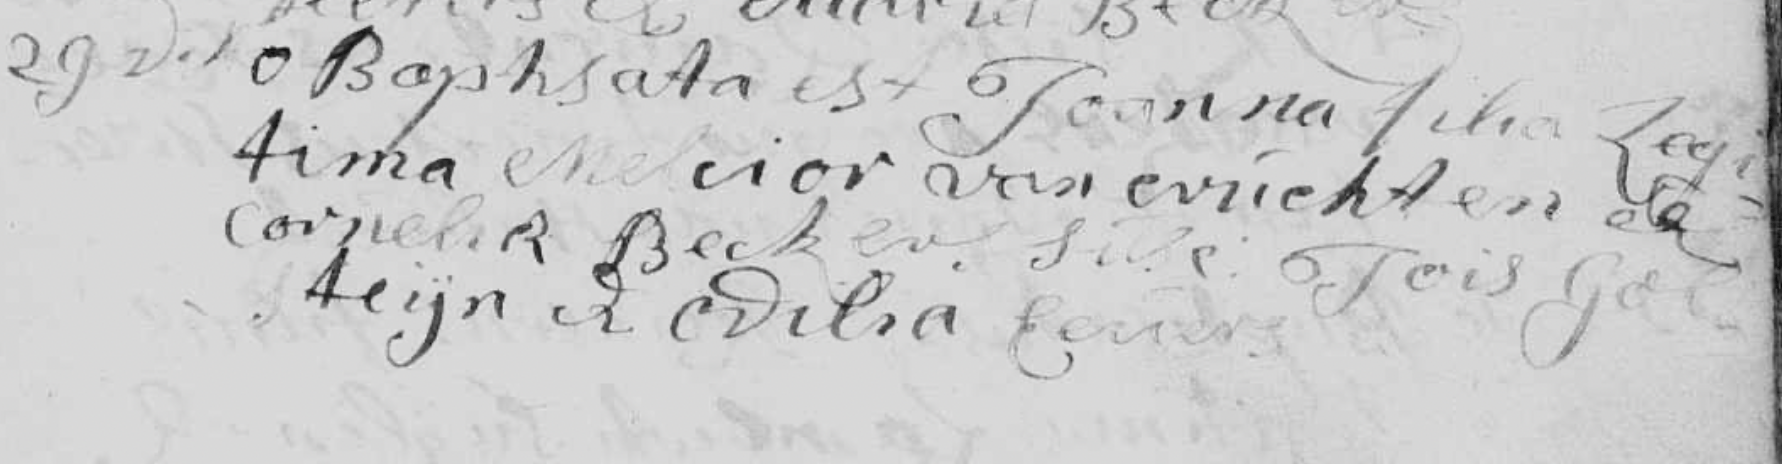 Beckers
29 dito Baptisata est Joanna filia Legi
tima Melcior van evüchten et
Cornelia Beckers Susc: Jois Gol-
steijn et Odilia